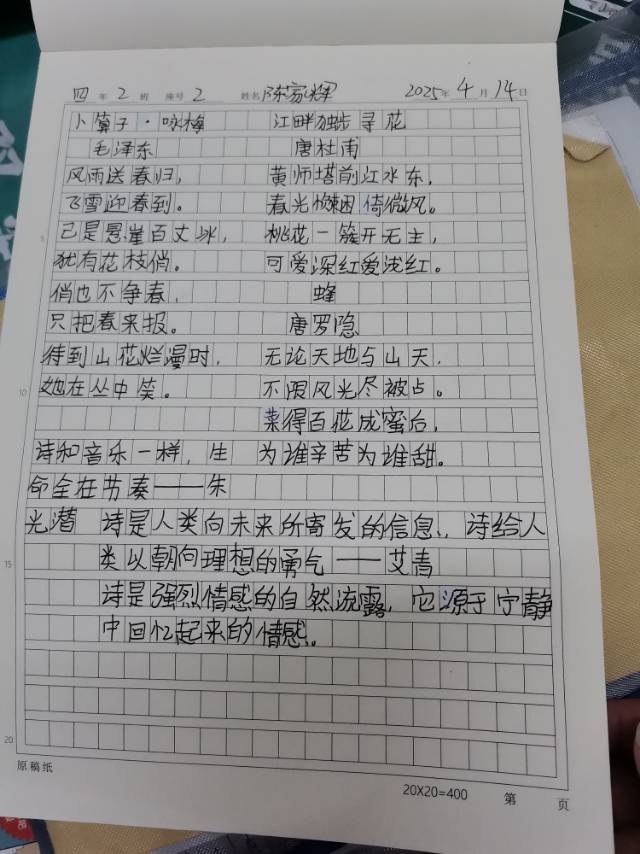 四年2班 座号2 姓名 陈家辉 2025年4月14日
卜算子·咏梅
毛泽东
风雨送春归,
飞雪迎春到。
已是悬崖百丈冰,
犹有花枝俏。
俏也不争春,
只把春来报。
待到山花烂漫时,
她在丛中笑。
江畔独步寻花
唐杜甫
黄师塔前江水东,
春光懒困倚微风。
桃花一簇开无主,
可爱深红爱浅红。
蜂
唐罗隐
无论天地与山天,
不限风光尽被占。
采得百花成蜜后,
为谁辛苦为谁甜。
诗和音乐一样,生
命全在节奏——朱
光潜
诗是人类向未来所寄发的信息,诗给人
类以朝向理想的勇气——艾青
诗是强烈情感的自然流露,它源于宁静
中回忆起来的情感。
5
10
15
20
原稿纸
20X20=400 第 页